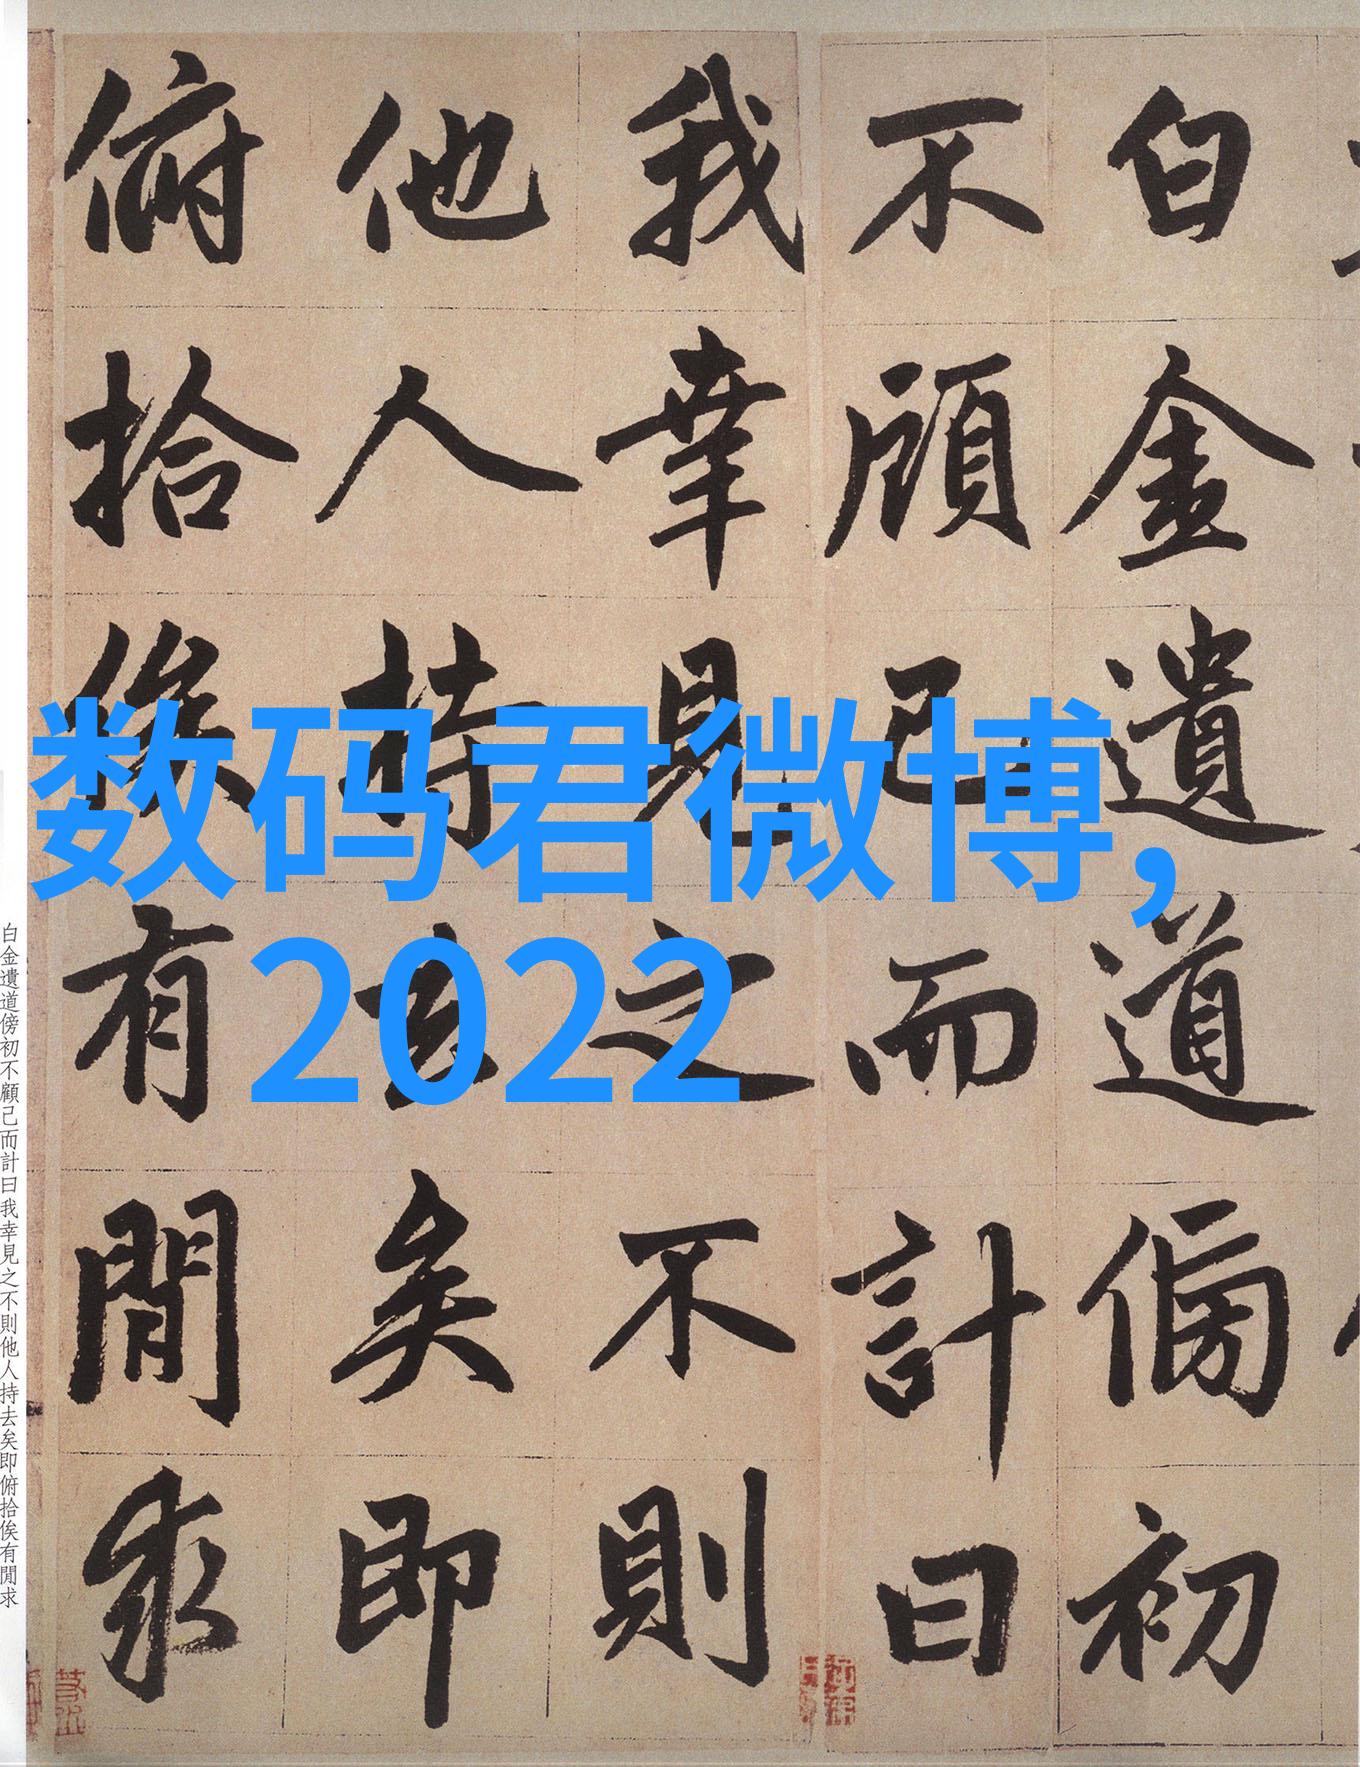 白金遺道傍初
不顧己而計曰
我幸見之不則
他人持去矣即
俯拾俟有閒求
数码君微博,
2022
白金遺道傍初不顧己而計曰我幸見之不則他人持去矣即俯拾俟有閒求